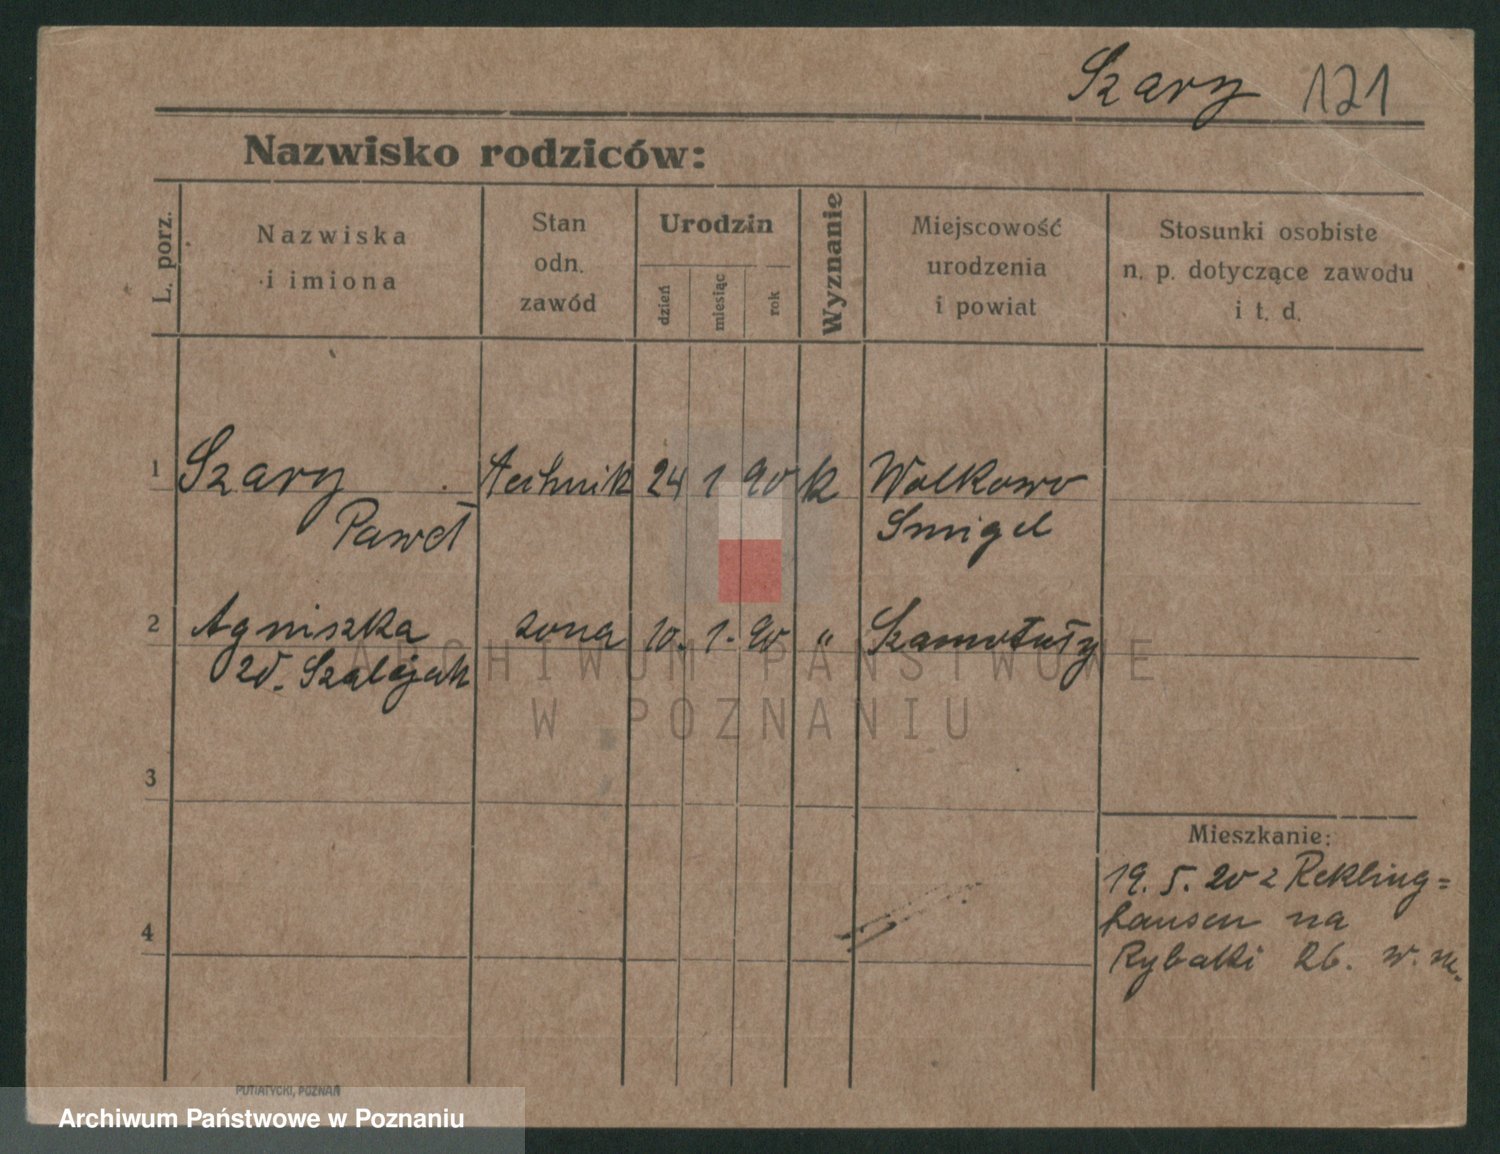 Szary 121
Nazwisko rodziców:
L. porz.
Nazwiska
i imiona
Stan
odn.
zawód
Urodzin
dzień
miesiąc
rok
Wyznanie
Miejscowość
urodzenia
i powiat
Stosunki osobiste
n. p. dotyczące zawodu
i t. d.
1 Szary technik 24 1 90 k Wolkowo
Paweł Smigel
2 Agniszka żona 10. 1. 90 " Szamotuły
zd.
ARCHIWUM PAŃSTWOWE
W POZNANIU
3
Mieszkanie:
19. 5. 20 z Rekling=
4 hausen na
Rybaki 26. w. m.
PUTIATYCKI, POZNAŃ
Archiwum Państwowe w Poznaniu